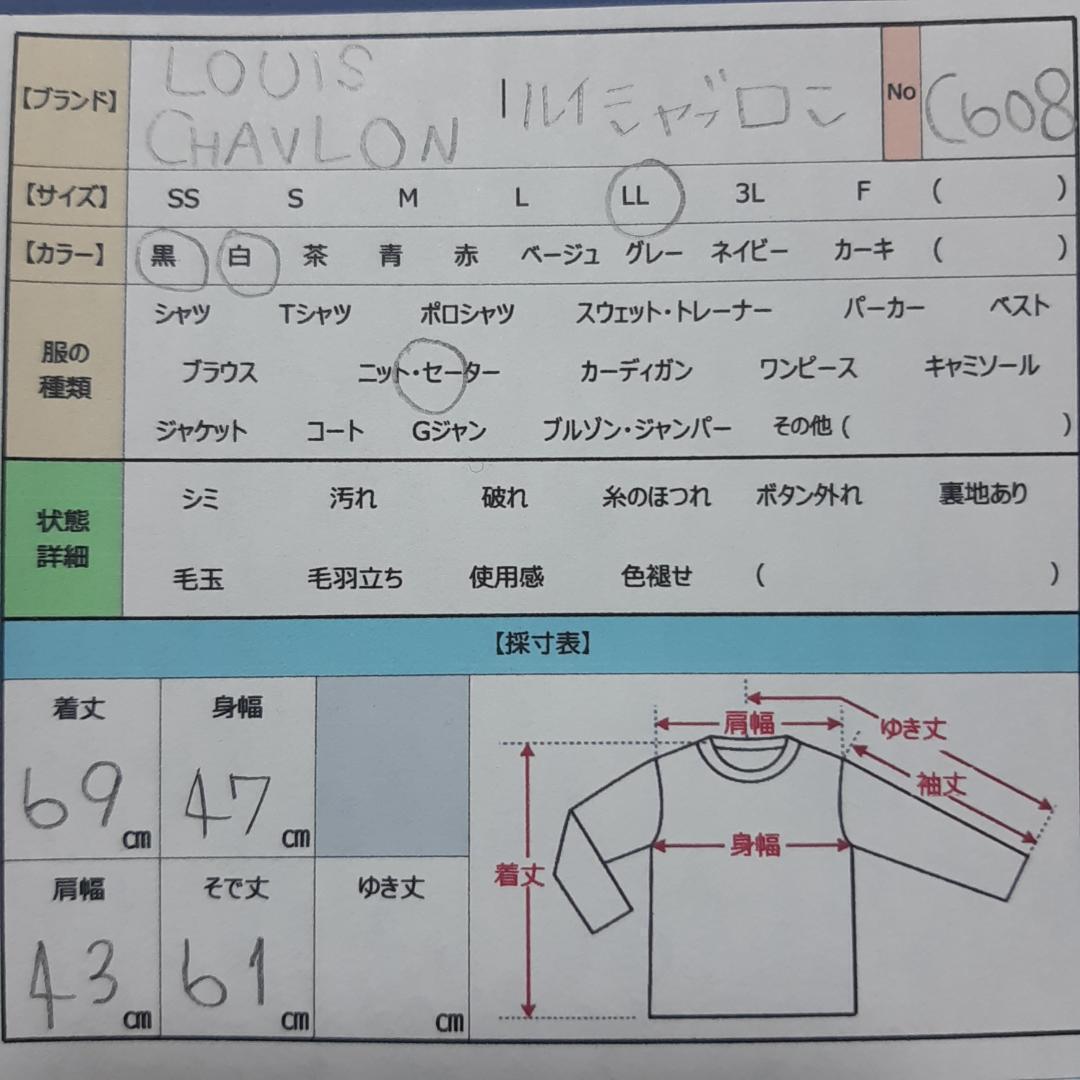 【ブランド】 LOUIS CHAVLON ルイシャブロン No C608
【サイズ】 SS S M L LL 3L F ( )
【カラー】 黒 白 茶 青 赤 ベージュ グレー ネイビー カーキ ( )
服の種類
シャツ Tシャツ ポロシャツ スウェット・トレーナー パーカー ベスト
ブラウス ニット・セーター カーディガン ワンピース キャミソール
ジャケット コート Gジャン ブルゾン・ジャンパー その他 ( )
状態詳細
シミ 汚れ 破れ 糸のほつれ ボタン外れ 裏地あり
毛玉 毛羽立ち 使用感 色褪せ ( )
【採寸表】
着丈 身幅
69 cm 47 cm
肩幅 そで丈 ゆき丈
43 cm 61 cm cm
肩幅 ゆき丈
袖丈
身幅
着丈